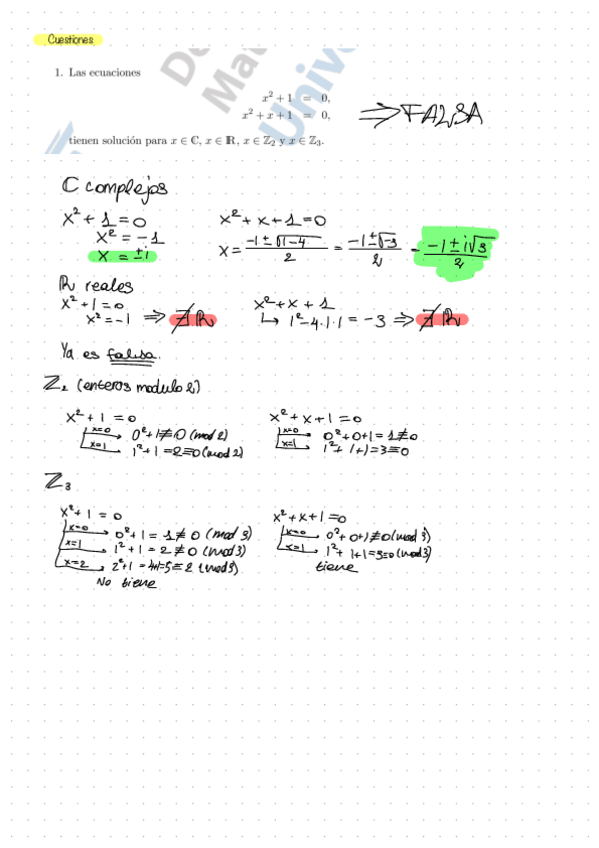 Cuestiones
1. Las ecuaciones
x² + 1 = 0,
x² + x + 1 = 0,
⟹ FALSA
tienen solución para x ∈ ℂ, x ∈ ℝ, x ∈ ℤ₂ y x ∈ ℤ₃.
ℂ complejos
x² + 1 = 0
x² = -1
x = ±i
x² + x + 1 = 0
x = (-1 ± √(1-4))/2 = (-1 ± √-3)/2 = (-1 ± i√3)/2
ℝ reales
x² + 1 = 0
x² = -1 ⟹ ∄ ℝ
x² + x + 1
↳ 1² - 4·1·1 = -3 ⟹ ∄ ℝ
Ya es falsa.
ℤ₂ (enteros modulo 2)
x² + 1 = 0
x=0 → 0² + 1 ≢ 0 (mod 2)
x=1 → 1² + 1 = 2 ≡ 0 (mod 2)
x² + x + 1 = 0
x=0 → 0² + 0 + 1 = 1 ≢ 0
x=1 → 1² + 1 + 1 = 3 ≡ 0
ℤ₃
x² + 1 = 0
x=0 → 0² + 1 = 1 ≢ 0 (mod 3)
x=1 → 1² + 1 = 2 ≢ 0 (mod 3)
x=2 → 2² + 1 = 4+1 = 5 ≡ 2 (mod 3)
No tiene
x² + x + 1 = 0
x=0 → 0² + 0 + 1 ≢ 0 (mod 3)
x=1 → 1² + 1 + 1 = 3 ≡ 0 (mod 3)
tiene